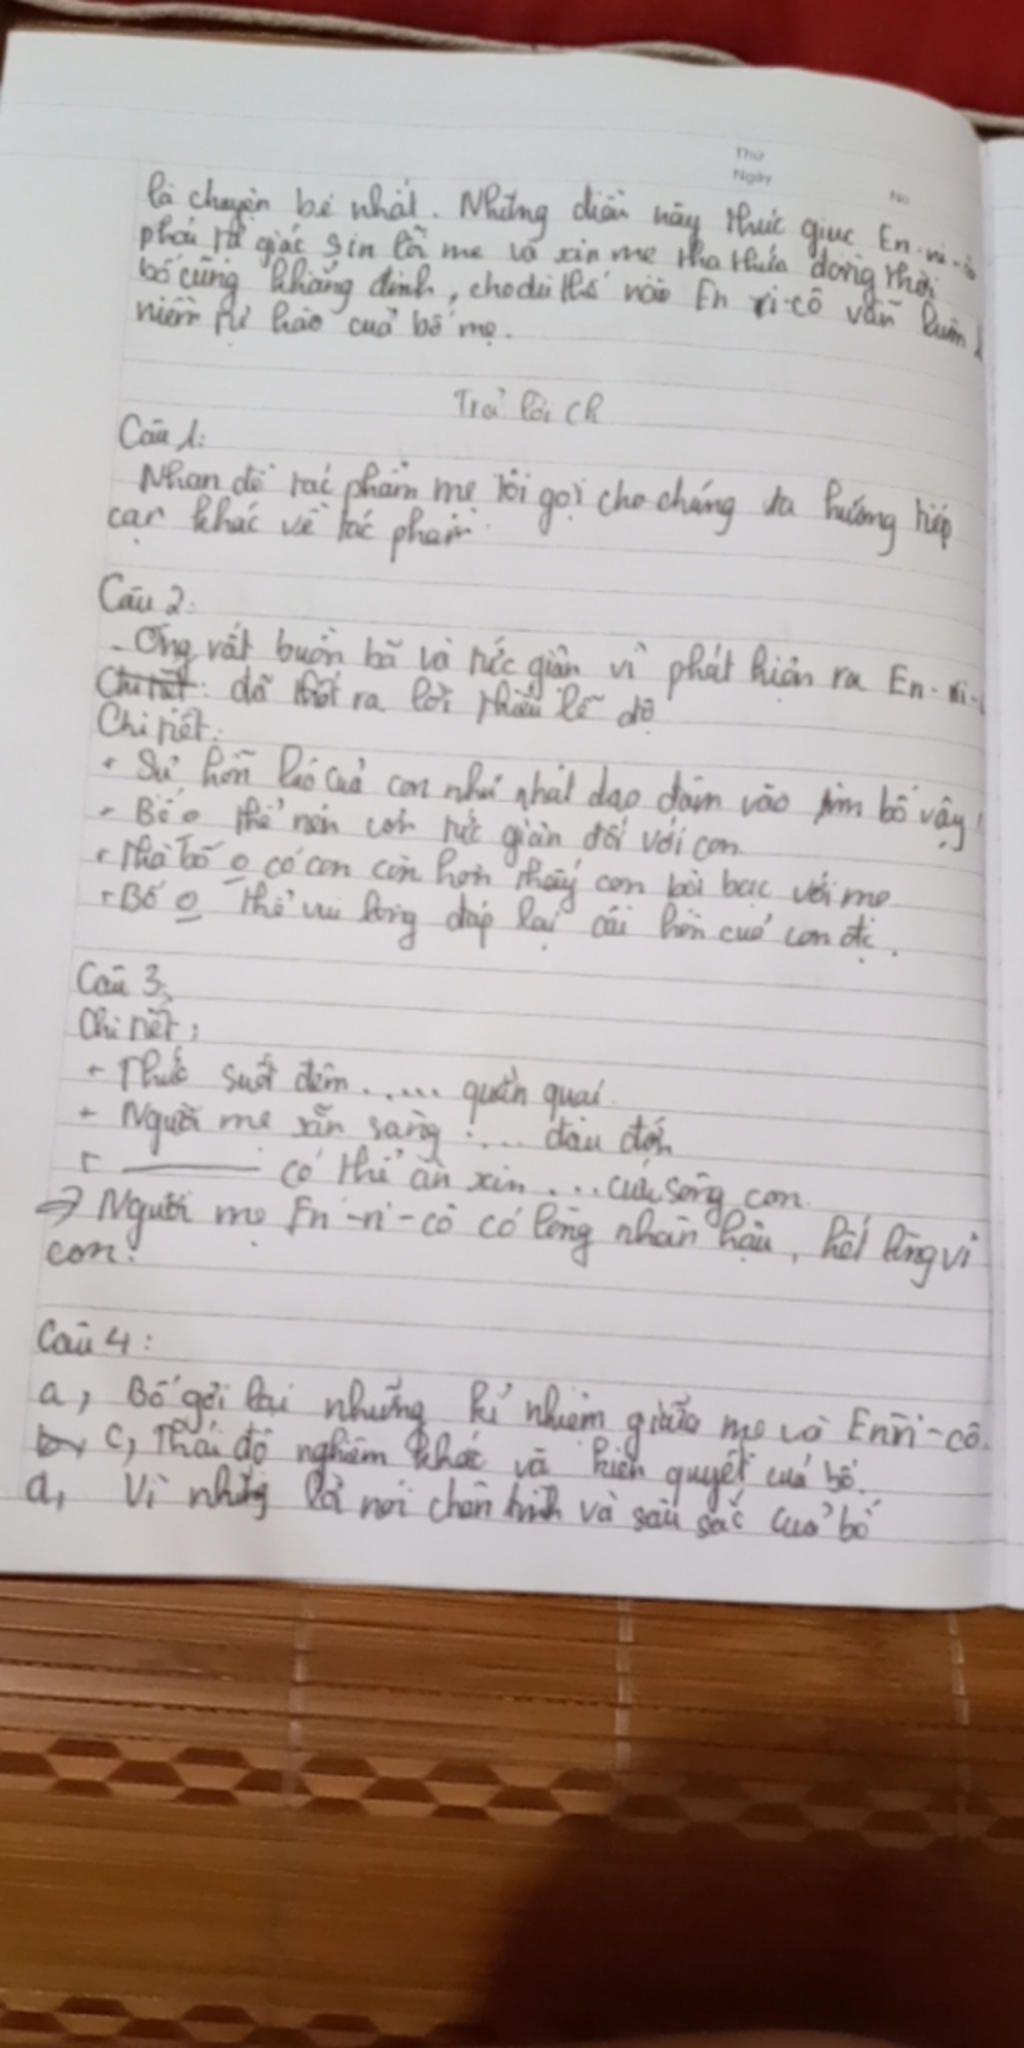 Thứ
Ngày
No
là chuyện bé nhất. Những điều này thúc giục En-ri-cô
phải tự giác xin lỗi mẹ và xin mẹ tha thứ đồng thời
bố cũng khẳng định, cho dù thế nào En ri-cô vẫn luôn là
niềm tự hào của bố mẹ.
Trả lời ch
Câu 1:
Nhan đề tác phẩm mẹ tôi gợi cho chúng ta hướng tiếp
cận khác về tác phẩm
Câu 2:
- Ông rất buồn bã và tức giận vì phát hiện ra En-ri-
Chi tiết: đã thốt ra lời thiếu lễ độ
Chi tiết:
+ Sự hỗn láo của con như nhát dao đâm vào tim bố vậy!
+ Bố o thể nén cơn tức giận đối với con
+ Thà bố o có con còn hơn thấy con bội bạc với mẹ
+ Bố o thể vui lòng đáp lại cái hôn của con đc.
Câu 3:
Chi tiết:
+ Thức suốt đêm ..... quằn quại.
+ Người mẹ sẵn sàng .... đau đớn
+ có thể ăn xin ... cứu sống con.
→ Người mẹ En-ri-cô có lòng nhân hậu, hết lòng vì
con.
Câu 4:
a, Bố gợi lại những kỉ niệm giữa mẹ và Enri-cô.
b, c, Thái độ nghiêm khắc và kiên quyết của bố.
d, Vì những lời nói chân tình và sâu sắc của bố